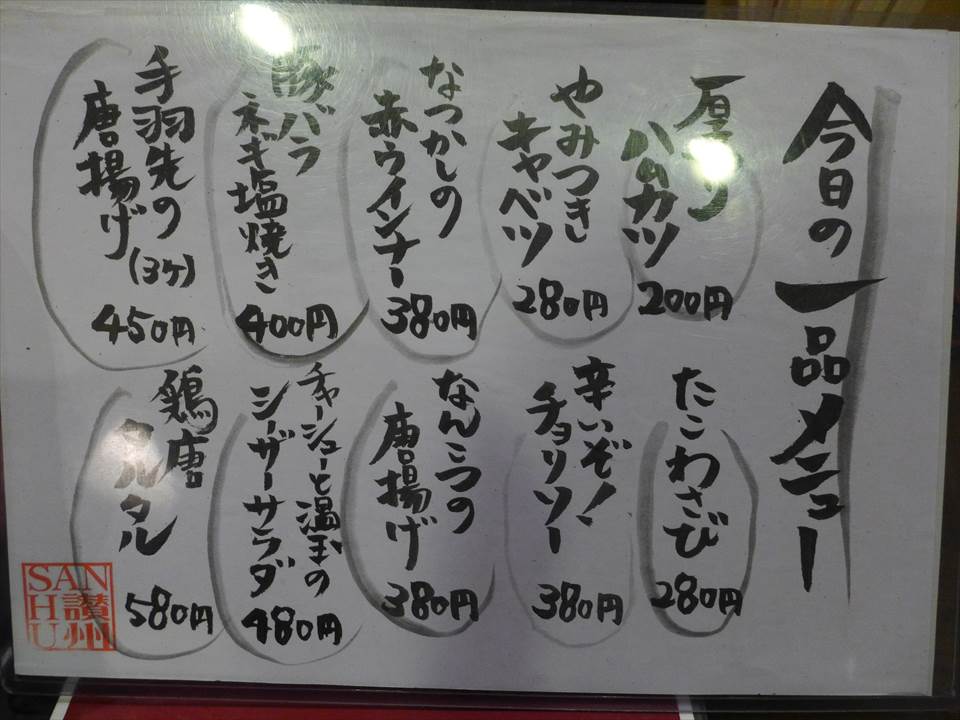 今日の一品メニュー
厚切り
ハムカツ
200円
やみつきし
キャベツ
280円
なつかしの
赤ウインナー
380円
豚バラ
ネギ塩焼き
400円
手羽先の
唐揚げ
(3ヶ)
450円
たこわさび
280円
辛いぞ!
チョリソー
380円
なんこつの
唐揚げ
380円
チャーシューと温玉の
シーザーサラダ
480円
鶏唐
タルタル
580円
SAN
H讃
U州